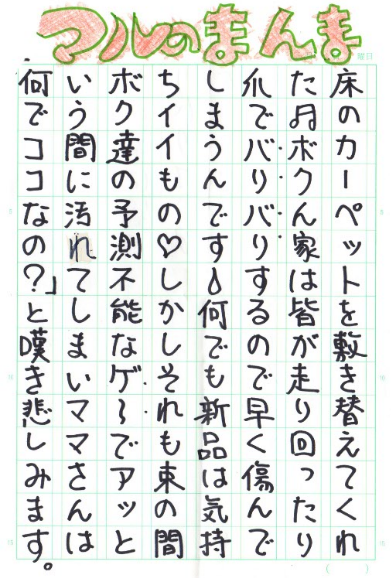 マルのまんま
曜日
床のカーペットを敷き替えてくれ
た♫ボクん家は皆が走り回ったり
爪でバリバリするので早く傷んで
しまうんです💧何でも新品は気持
ちイイもの♡しかしそれも束の間
ボク達の予測不能なゲ〜でアッと
いう間に汚れてしまいママさんは
何でココなの?」と嘆き悲しみます。